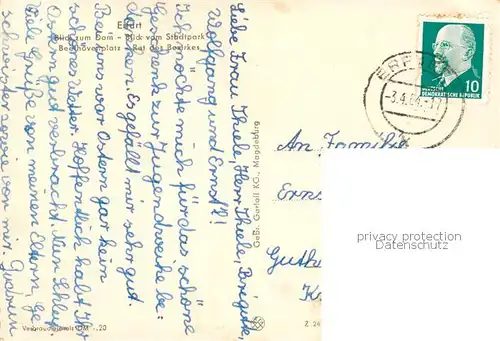 Erfurt
Blick zum Dom - Blick vom Stadtpark
Beethovenplatz - Rat des Bezirkes
Liebe Frau Thiele, Herr Thiele, Brigitte,
Wolfgang und Ernst!
Ich möchte mich für das schöne
Geschenk zur Jugendweihe be-
danken. Es gefällt mir sehr gut.
Bei uns war Ostern gar kein
schönes Wetter. Hoffentlich habt Ihr
Ostern gut verbracht. Nun Schluß
Viele Grüße von meinen Eltern, Ge-
schwistern sowie von mir. Gudrun
Verbraucherpreis DM -,20
Gebr. Garloff KG., Magdeburg
Z 24
ERFURT
-3.4.64.-17
DEUTSCHE
DEMOKRATISCHE REPUBLIK
10
An Familie
Ernst
privacy protection
Datenschutz